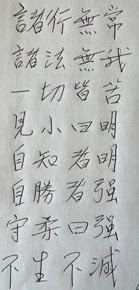 諸行無常
諸法無我
一切皆苦
見小曰明
自知者明
自勝者强
守柔曰强
不生不滅